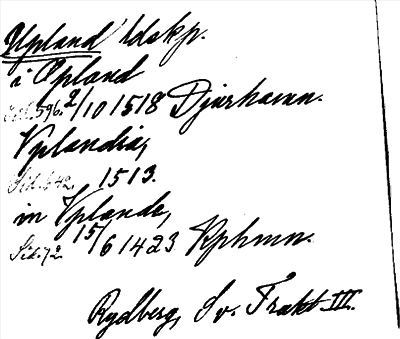 Upland ldskp.
i Opland
Sid. 596. 2/10 1518 Djurhamn.
Vplandia,
Sid. 542. 1513.
in Vplande,
Sid. 72. 15/6 1423 Kphmn.
Rydberg, Sv. Trakt. III.